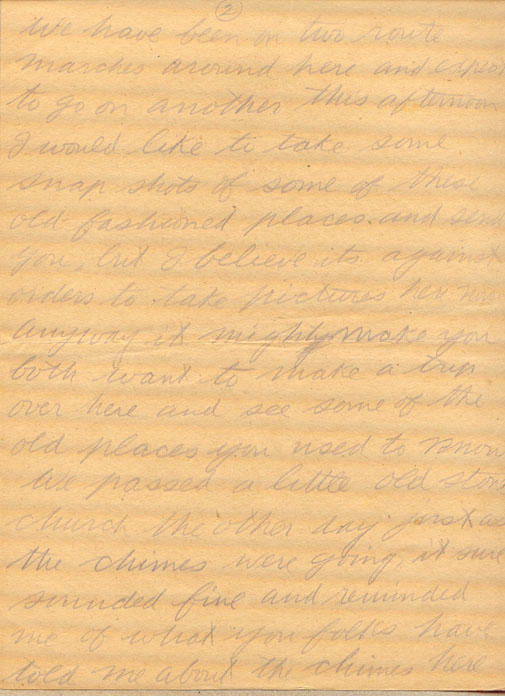 (2)
We have been on two route
marches around here and expect
to go on another this afternoon
I would like to take some
snap shots of some of these
old fashioned places and send
you, but I believe its against
orders to take pictures here now
Anyway it might make you
both want to make a trip
over here and see some of the
old places you used to know
We passed a little old stone
church the other day just as
the chimes were going, it sure
sounded fine and reminded
me of what you folks have
told me about the chimes here